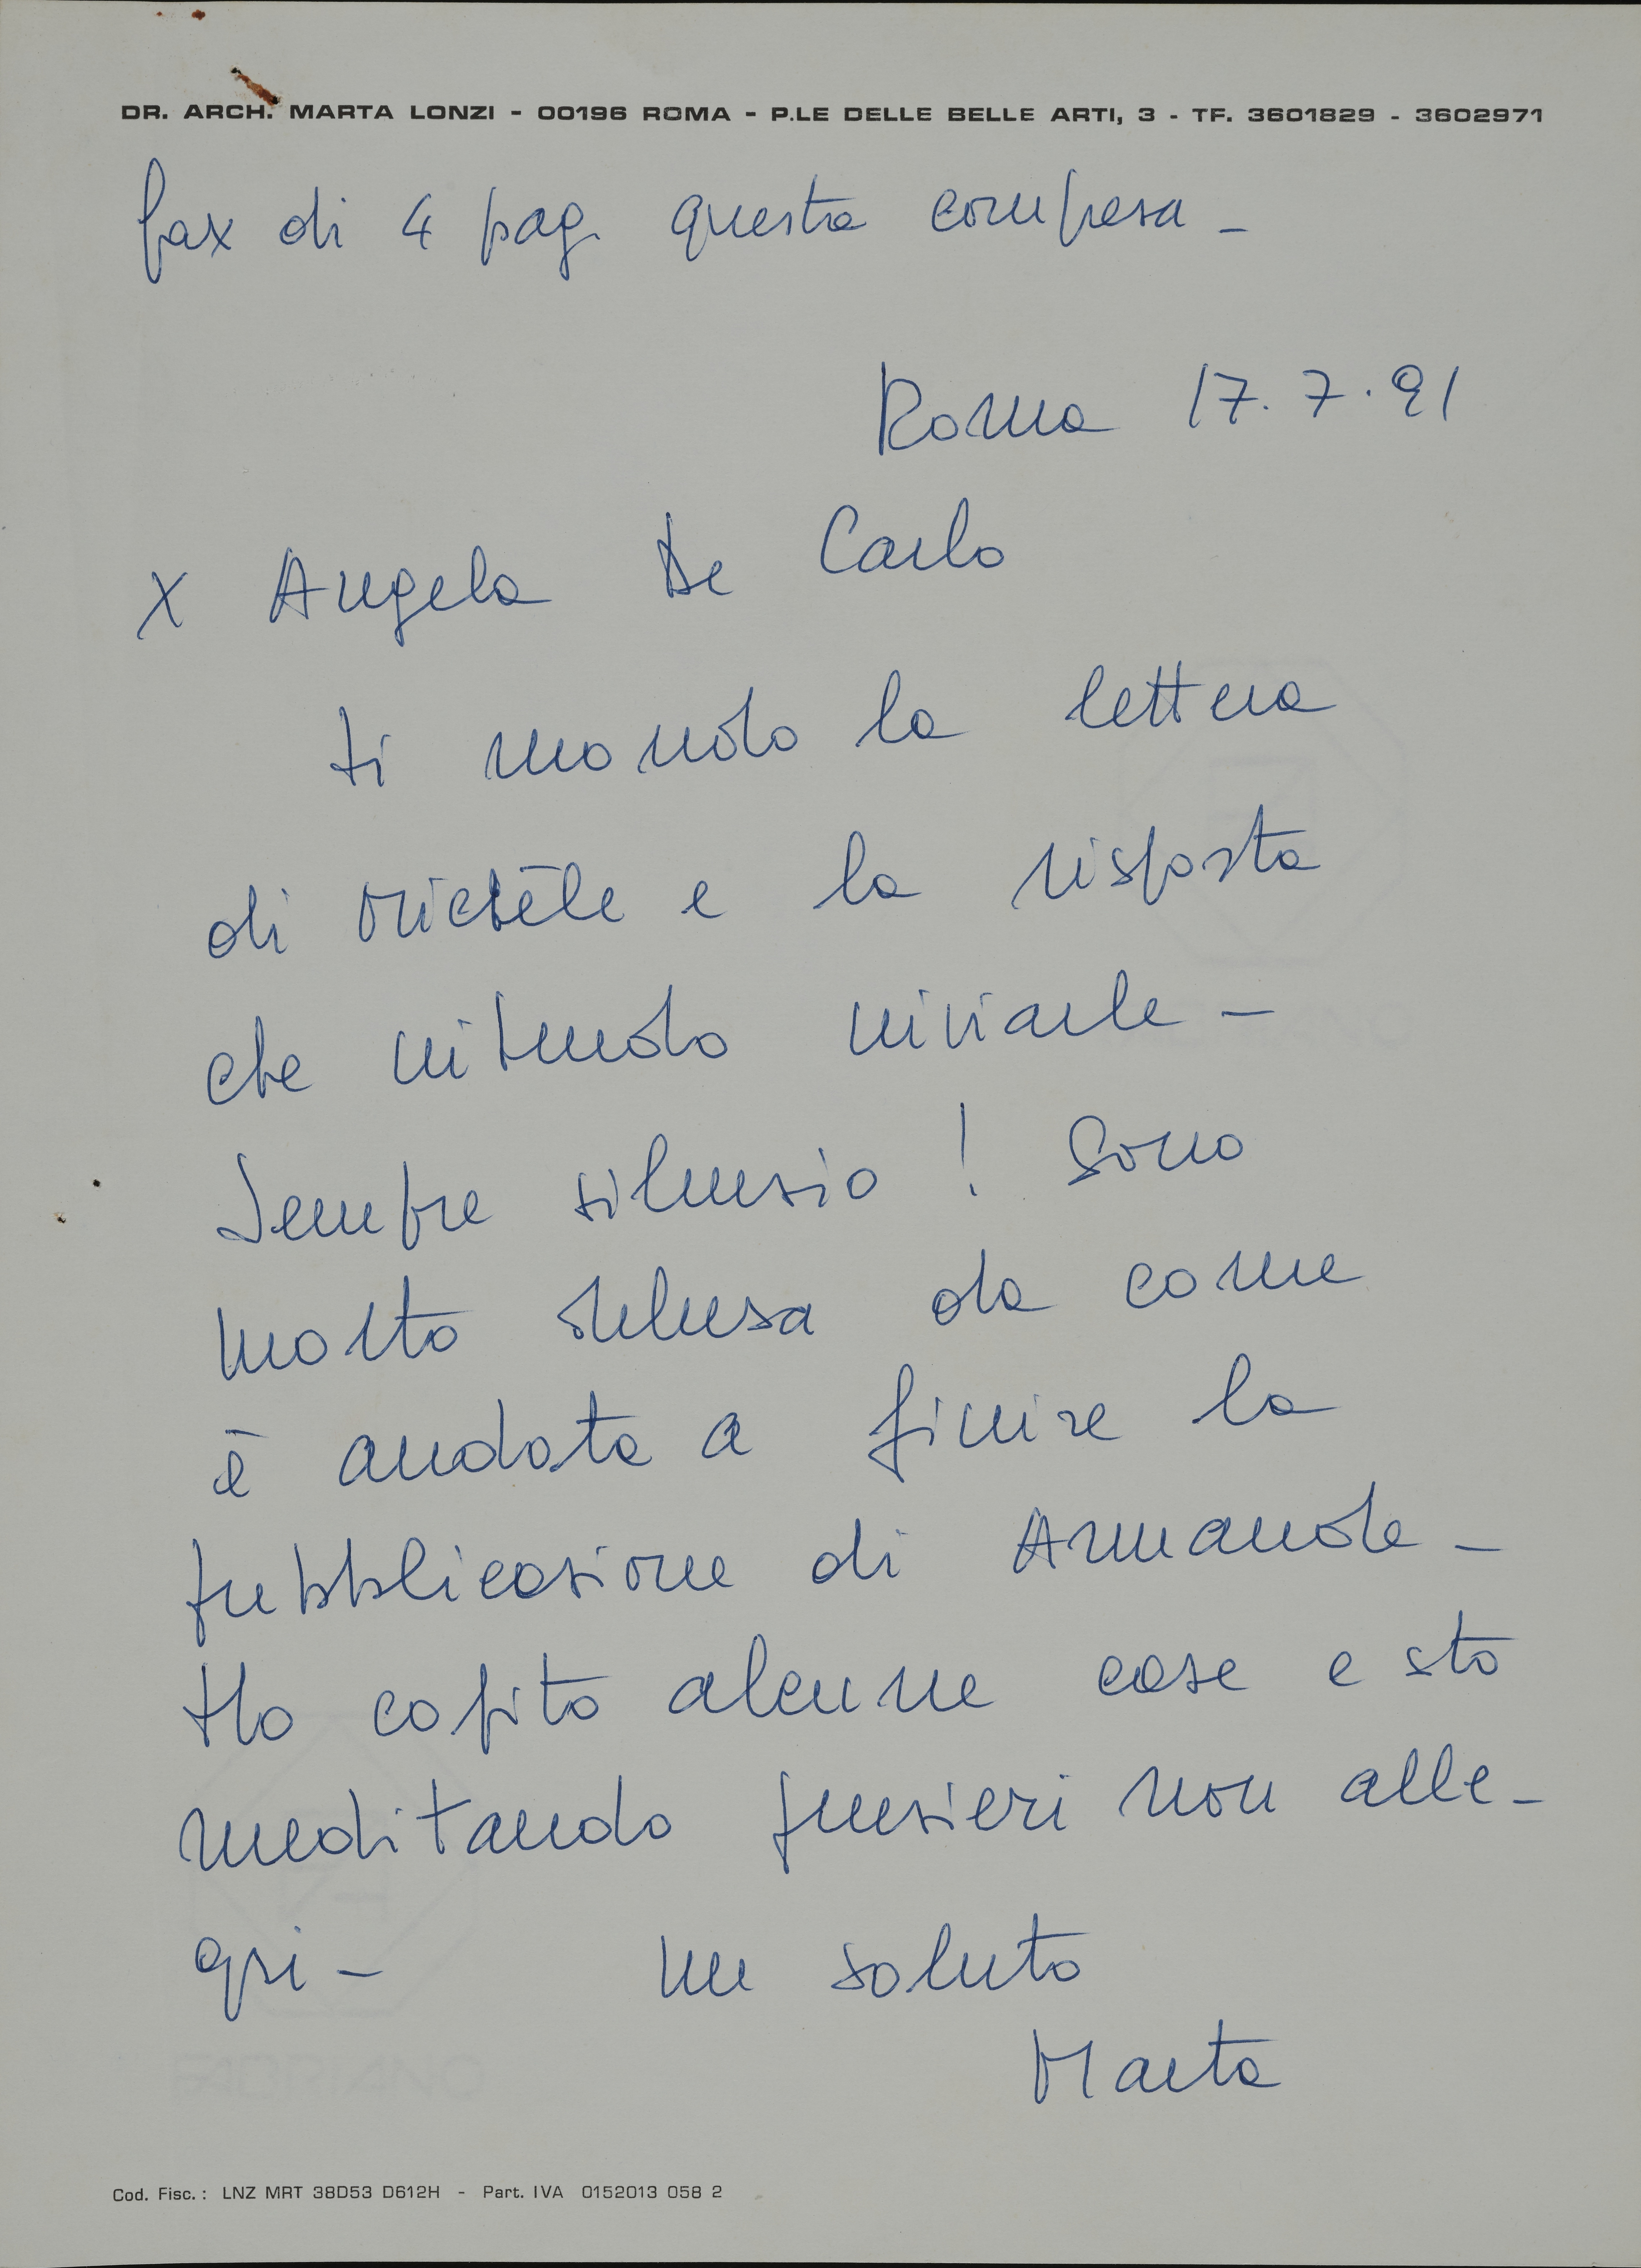 DR. ARCH. MARTA LONZI - 00196 ROMA - P.LE DELLE BELLE ARTI, 3 - TF. 3601829 - 3602971
fax di 4 pag. questa compresa –
Roma 17.7.91
X Angela De Carlo
ti mando la lettera
di Michèle e la risposta
che intendo inviarle –
Sempre silenzio! Sono
molto delusa da come
è andata a finire la
pubblicazione di Armande –
Ho capito alcune cose e sto
meditando pensieri non alle-
gri – un saluto
Marta
Cod. Fisc.: LNZ MRT 38D53 D612H - Part. IVA 0152013 058 2